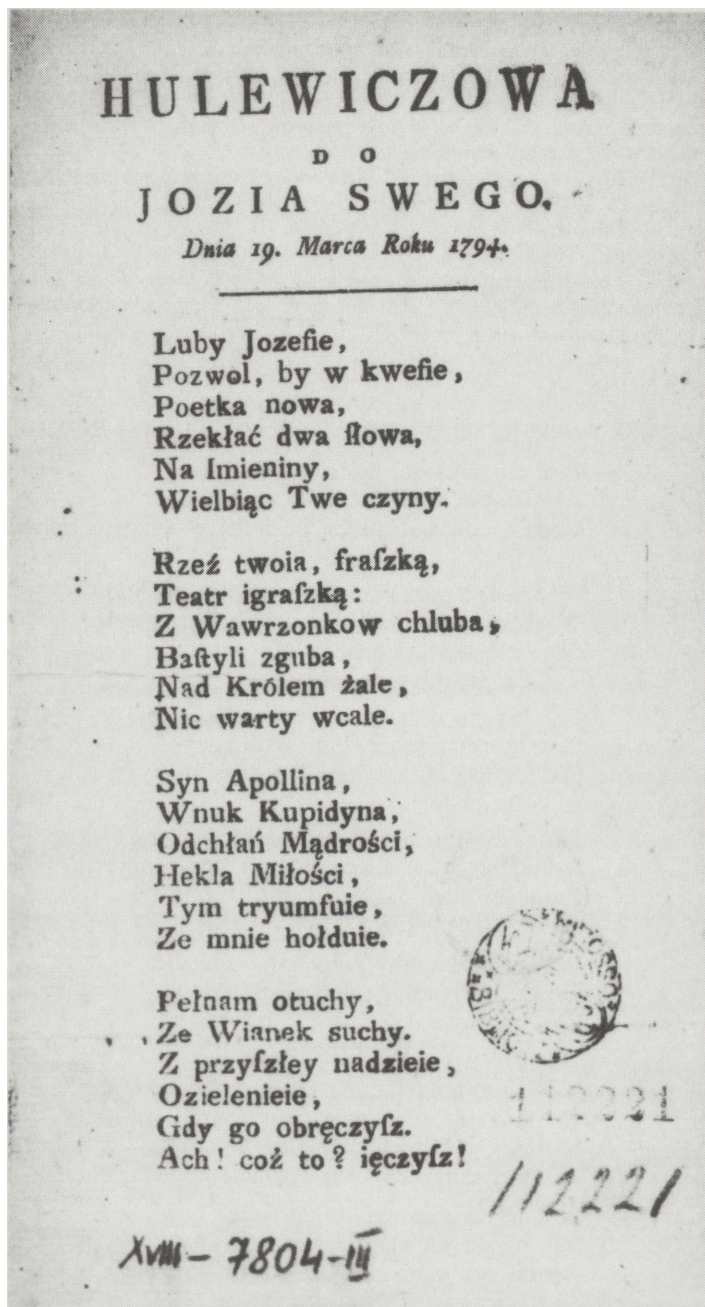 HULEWICZOWA
DO
JOZIA SWEGO.
Dnia 19. Marca Roku 1794.
Luby Jozefie,
Pozwol, by w kwefie,
Poetka nowa,
Rzekłać dwa ſłowa,
Na Imieniny,
Wielbiąc Twe czyny.
Rzeź twoia, fraſzką,
Teatr igraſzką:
Z Wawrzonkow chluba,
Baſtyli zguba,
Nad Królem żale,
Nic warty wcale.
Syn Apollina,
Wnuk Kupidyna,
Odchłań Mądrości,
Hekla Miłości,
Tym tryumfuie,
Ze mnie hołduie.
Pełnam otuchy,
Ze Wianek suchy.
Z przyſzłey nadzieie,
Ozielenieie,
Gdy go obręczyſz.
Ach! coż to? ięczyſz!
112221
XVIII-7804-III